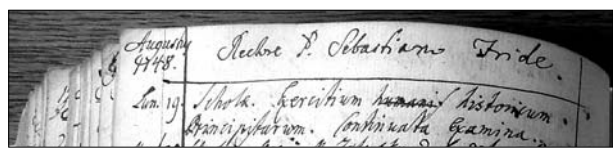 Augusty Rectore P. Sebastiano Fride.
1748.
Lun. 19. Schola. Exercitium humanis historicum.
Principistarum. Continuata Examina.